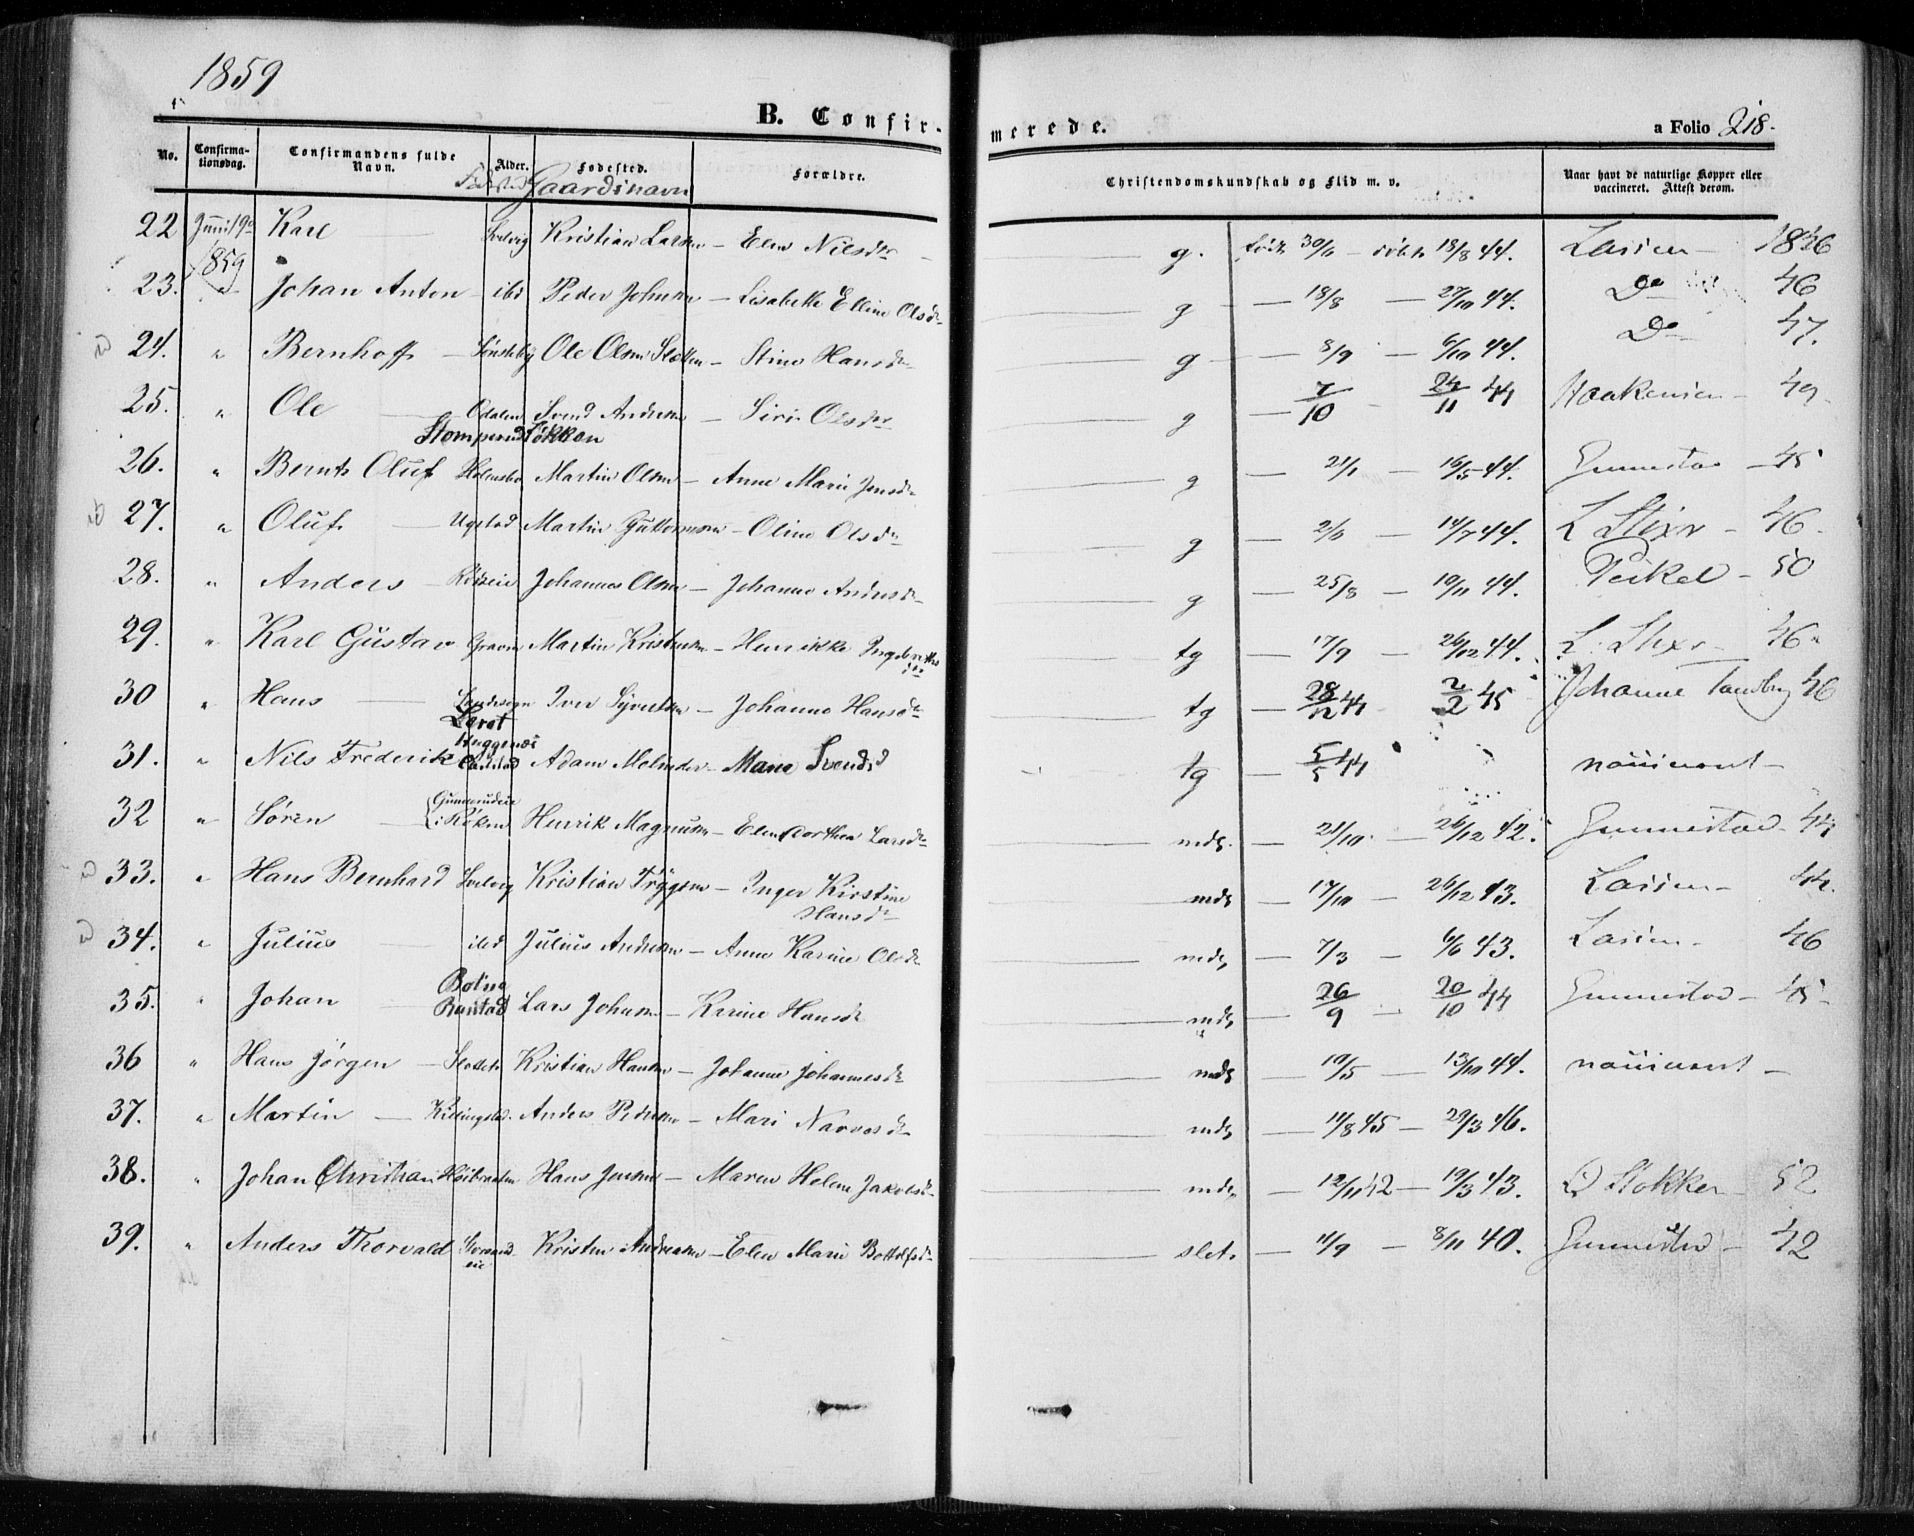 1859
B. Confir- merede. a Folio 218.
No. Confirma-tionsdag. Confirmandens fulde Navn. Alder. Fødested. Gaardsnavn Forældre. Christendomskundskab og Flid m. v. Naar havt de naturlige Kopper eller vaccineret. Attest derom.
22 Juni 19de 1859 Karl Svelvig Kristian Larsen – Elen Nilsdtr g. født 30/6 – døbt 18/8 44. Lassen – 1846
23. " Johan Anton – ibd Peder Johnsen – Lisabeth Elline Olsdr g – 18/8 – 27/10 44. Do 46
24. " Bernhoff – Ole Olsen – Stine Hansdr g – 8/9 – 6/10 44. Do 47.
25. " Ole Odalen Svend Andersen – Siri Olsdtr g – 7/10 – 24/11 44 Haakensen – 49.
Stomperudløkken
26. " Bernt Oluf Martin Olsen – Anne Marie Jensdr g – 21/1 – 16/5 44. Gunnestad – 45
27. " Oluf – Martin Guttormsen – Oline Olsdr g – 2/6 – 14/7 44. L Stixr – 46.
28. " Anders – Johannes Olsen – Johanne Andersdr g – 25/8 – 10/11 44. Peikel – 50
29. " Karl Gustav Martin Kristensen – Henrikke Ingebrethsdtr tg – 17/9 – 26/12 44. L. Stixr – 46
30 " Hans Iver Syvertsen – Johanne Hansdr tg – 28/12 44 2/2 45 Johanne Tandberg 46
31. " Nils Frederik Adam – Maria Svendsd tg – 5/5 44
32 " Søren – i Røken Henrik Magnusen – Elen Dorthea Larsdr mdg. – 21/10 – 26/12 42. Gunnestad – 44
33. " Hans Bernhard Svelvig Kristian Trygesen – Inger Kirstine Hansdr mdg – 17/10 – 26/12 43. Lassen – 44.
34. " Julius – ibd Julius Andersen – Anne Karine Olsdr mdg – 7/3 – 6/6 43. Lassen – 46
35. " Johan Lars Johnsen – Karine Hansdr mdg 26/9 – 20/10 44 Gunnestad – 45 –
36 " Hans Jørgen – Kristian Hansen – Johanne Johannesdr mdg – 19/5 – 13/10 44.
37. " Martin – Killingstad. Anders Pedersen – Mari Narvesdr mdg – 11/8 45 – 29/3 46.
38. " Johan Christian Høibraaten Hans Jensen – Maren Helene Jakobsdr mdg – 12/11 42 – 19/3 43. Stokker – 52
39. " Anders Thorvald Kristen Andreasen – Elen Marie Bottolfsdr slet. – 11/9 – 8/11 40. Gunnestad – 42